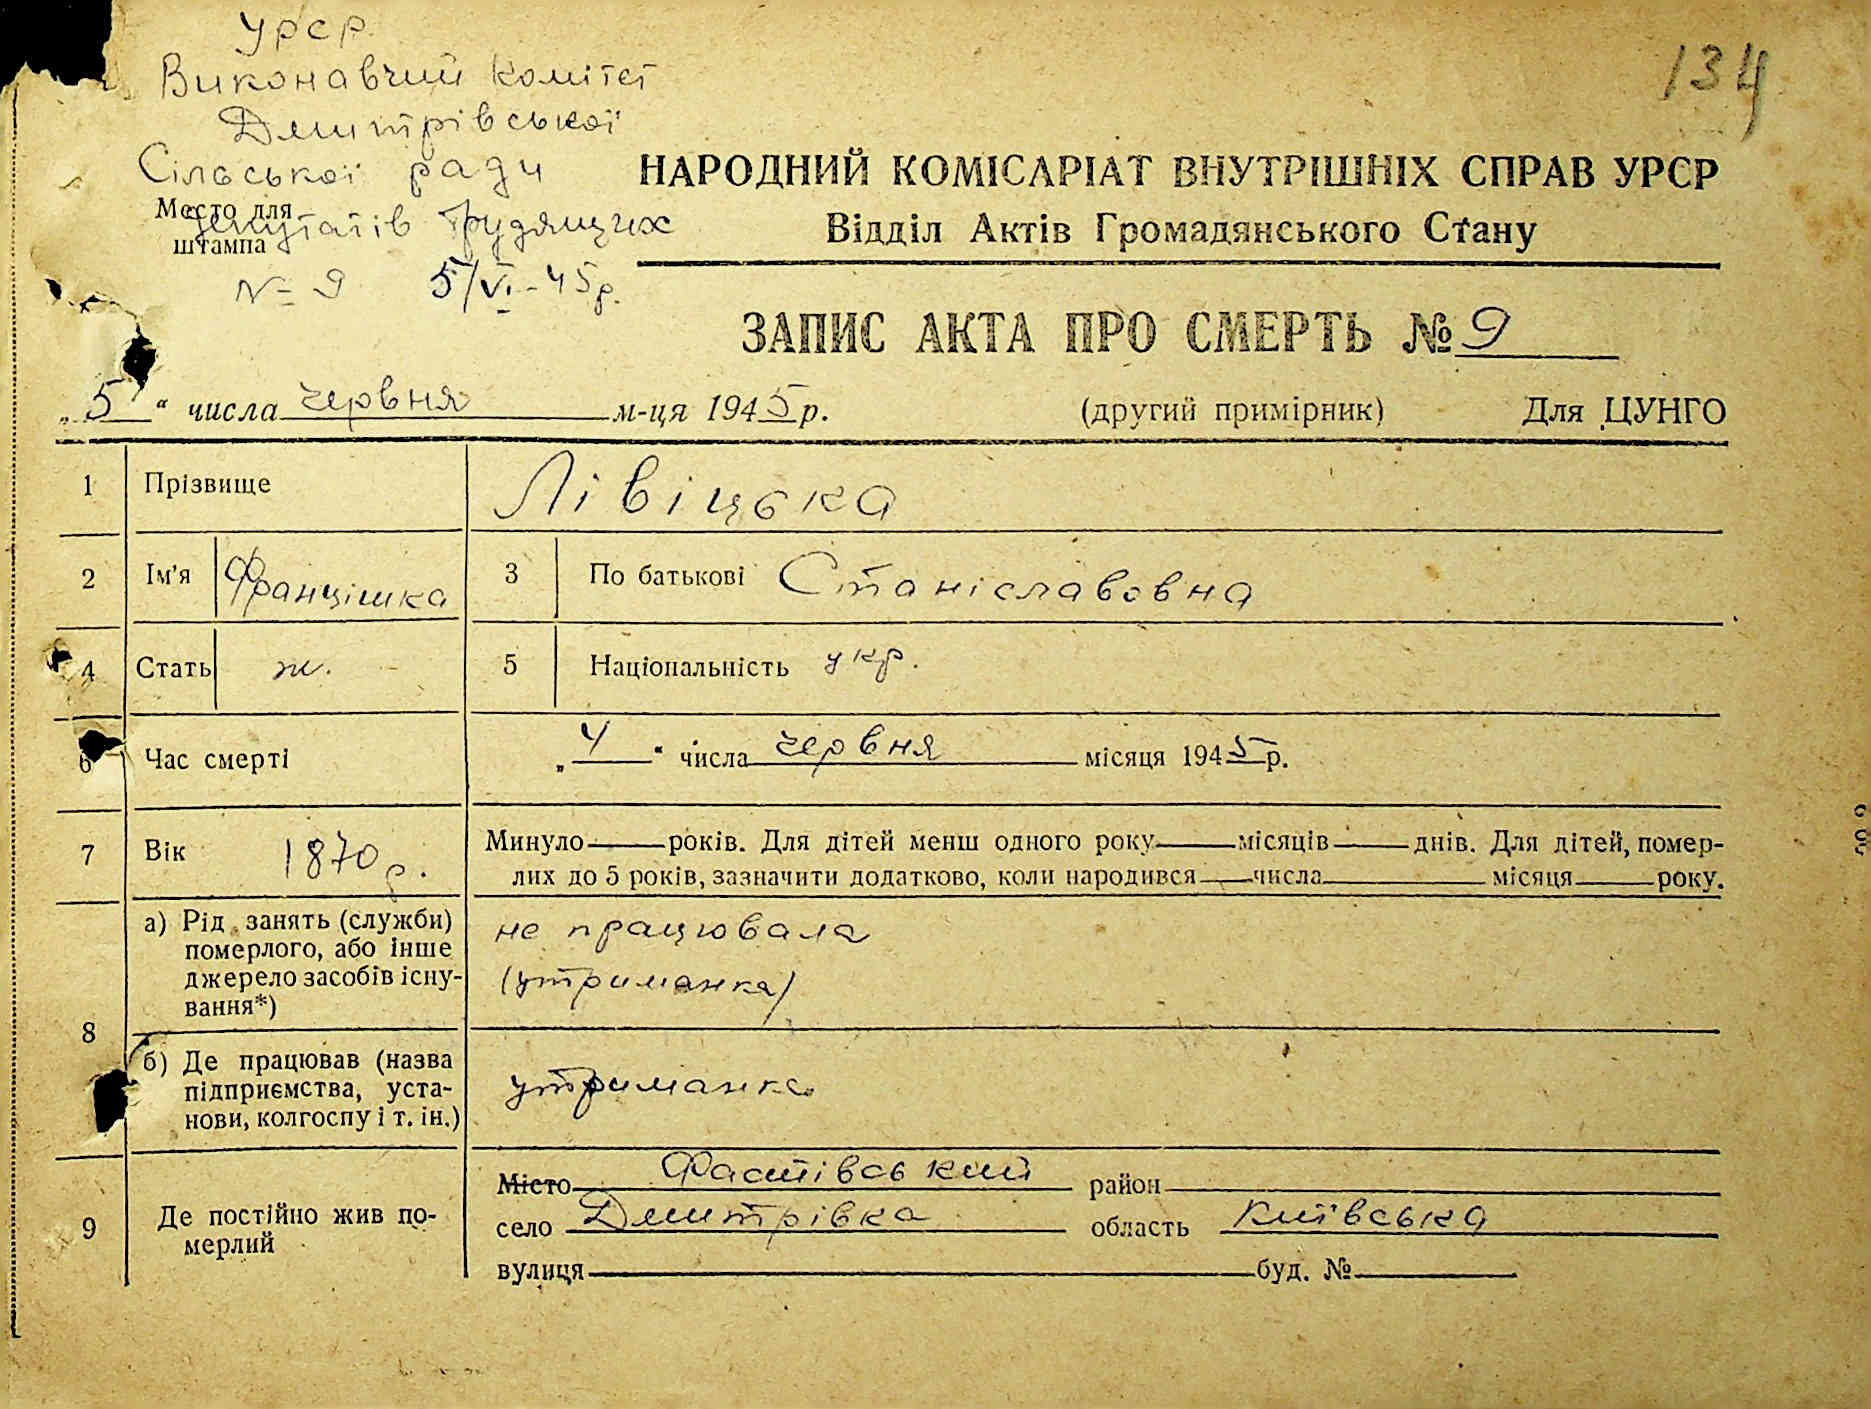 УРСР
Виконавчий Комітет
Дмитрівської
Сільської ради
Место для
штампа
депутатів Трудящих
№ 9 5/VI-45р.
134
НАРОДНИЙ КОМІСАРІАТ ВНУТРІШНІХ СПРАВ УРСР
Відділ Актів Громадянського Стану
ЗАПИС АКТА ПРО СМЕРТЬ № 9
„5“ числа червня м-ця 1945 р.
(другий примірник) Для ЦУНГО
1 Прізвище Лівіцька
2 Ім'я Францішка 3 По батькові Станіславовна
4 Стать ж. 5 Національність укр.
6 Час смерті „4“ числа червня місяця 1945 р.
7 Вік 1870 р. Минуло років. Для дітей менш одного року місяців днів. Для дітей, помер-
лих до 5 років, зазначити додатково, коли народився числа місяця року.
8
а) Рід занять (служби)
померлого, або інше
джерело засобів існу-
вання*)
не працювала
(утриманка)
б) Де працював (назва
підприємства, уста-
нови, колгоспу і т. ін.)
утриманка
9 Де постійно жив по-
мерлий
Місто Фастівський район
село Дмитрівка область Київська
вулиця буд. №